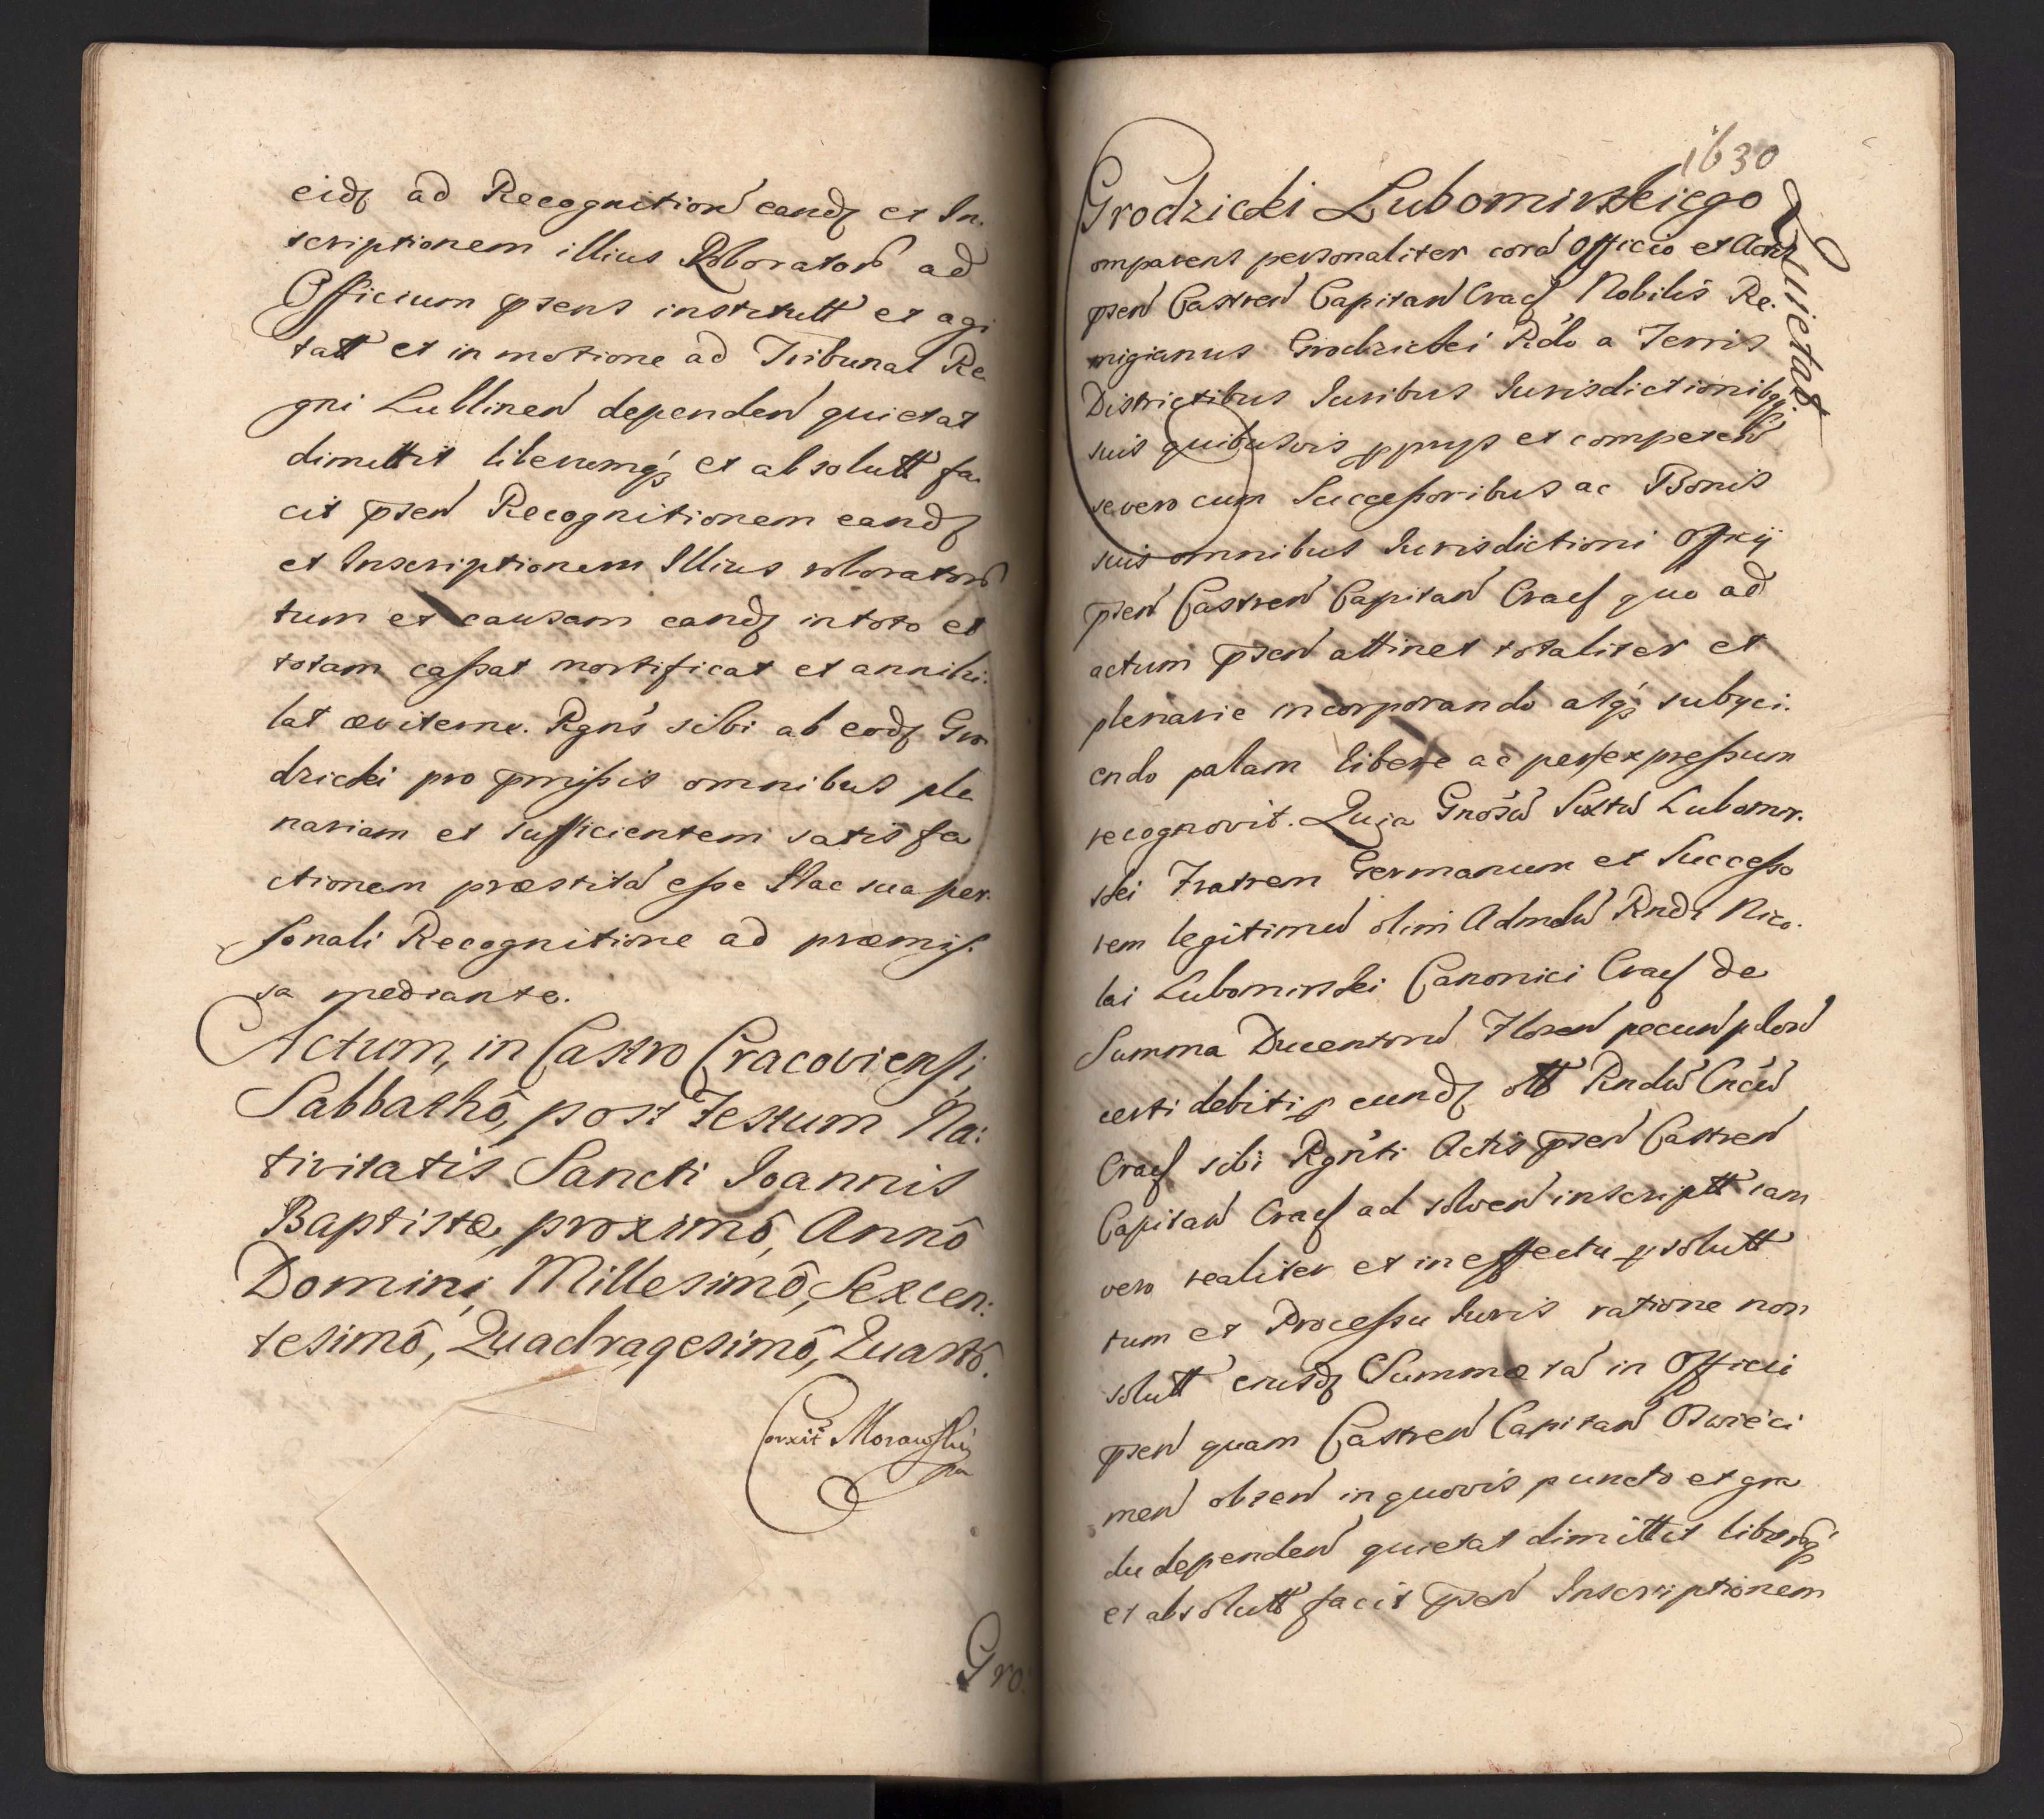 eidꝫ ad Recognition̄ eandꝫ et In-
scriptionem illius Roborator̄ ad
Officium pn̄sens institutt et agi
tatt et in motione ad Tribunal Re
gni Lublinen̄ dependen̄ quietat
dimittit liberumqꝫ et absolutt fa
cit pn̄sen̄ Recognitionem eandꝫ
et Inscriptionem Illius roborator̄
tum et causam eandꝫ in toto et
totam cassat mortificat et annihi:
lat æviterne. Rgn̄s sibi ab eodꝫ Gro
dzicki pro pmissis omnibus ple
nariam et sufficientem satisfa
ctionem præstitā esse Hac sua per-
sonali Recognitione ad præmis-
sa mediante.
Actum, in Castro Cracoviensi,
Sabbathô, post Festum Na:
tivitatis Sancti Ioannis
Baptistæ, proximô, Annô
Domini, Millesimô, Sexcen:
tesimô, Quadragesimô, Quartô.
Corxit Morawski
mp
Gro:
1630
Grodzicki Lubomirskiego
Quietat
omparens personaliter corā Officio et Actis
pn̄sen̄ Castren̄ Capitan̄ Cracꝭ Nobilis Re-
migianus Grodzicki Rᵈo a Terris
Districtibus Iuribus Iurisdictionibqꝫ
suis quibusvis pprys et competen̄
se vero cum Successoribus ac Bonis
suis omnibus Iurisdictioni Officij
pn̄sen̄ Castren̄ Capitan̄ Cracꝭ quo ad
actum pn̄sen̄ attinet totaliter et
plenarie incorporando atqꝫ subyci-
endo palam libere ac per expressum
recognovit. Quia Gnōsū Sixtū Lubomir-
ski Fratrem Germanum et Successo
rem legitimū olim Admdū Rndi Nico-
lai Lubomirski Canonici Cracꝭ de
Summa Ducentorū Floren̄ pecun̄ plon̄
certi debiti p eundꝫ ott Rndū Cn̄cū
Cracꝭ sibi Rgn̄ti Actis pn̄sen̄ Castren̄
Capitan̄ Cracꝭ ad solven̄ inscriptt iam
vero realiter et in effectu psolutt
tum et Processu Iuris ratione non
solutt eiusdꝫ Summæ tā in Officii
pn̄sen̄ quam Castren̄ Capitan̄ Oswieci
men̄ obten̄ in quovis puncto et gra
du dependen̄ quietat dimittit liberūqꝫ
et absolutt facit pn̄sen̄ Inscriptionem